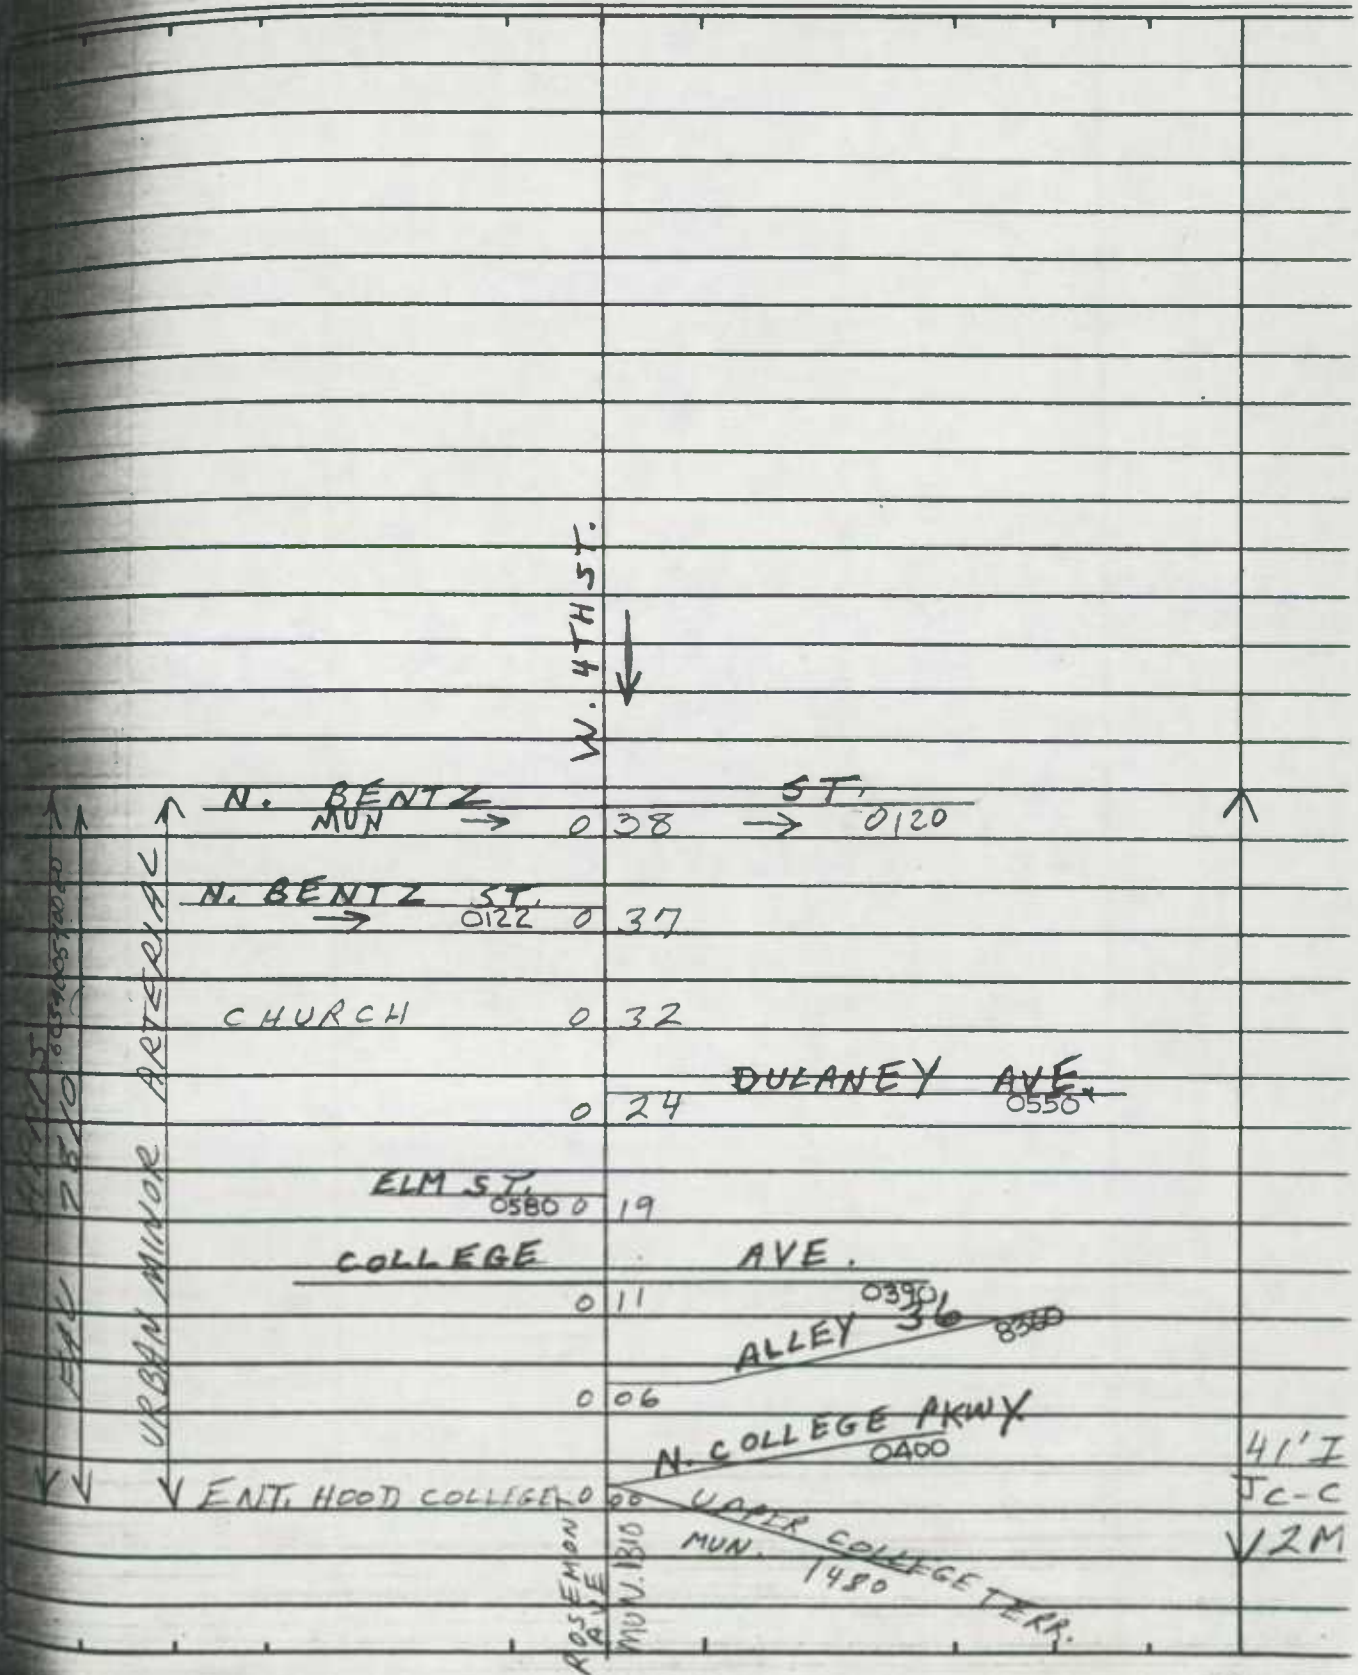 W. 4TH ST.
N. BENTZ ST.
MUN → 0 38 → 0120
N. BENTZ ST.
→ 0122 0 37
CHURCH 0 32
DULANEY AVE.
0 24 0550
ELM ST.
0580 0 19
COLLEGE AVE.
0 11 0390
ALLEY 36 8360
0 06
N. COLLEGE PKWY.
0400
ENT. HOOD COLLEGE 0 00
UPPER COLLEGE TERR.
MUN. 1480
ROSEMON AVE
MUN. 1310
URBAN MINOR ARTERIAL
41' I
JC-C
2M